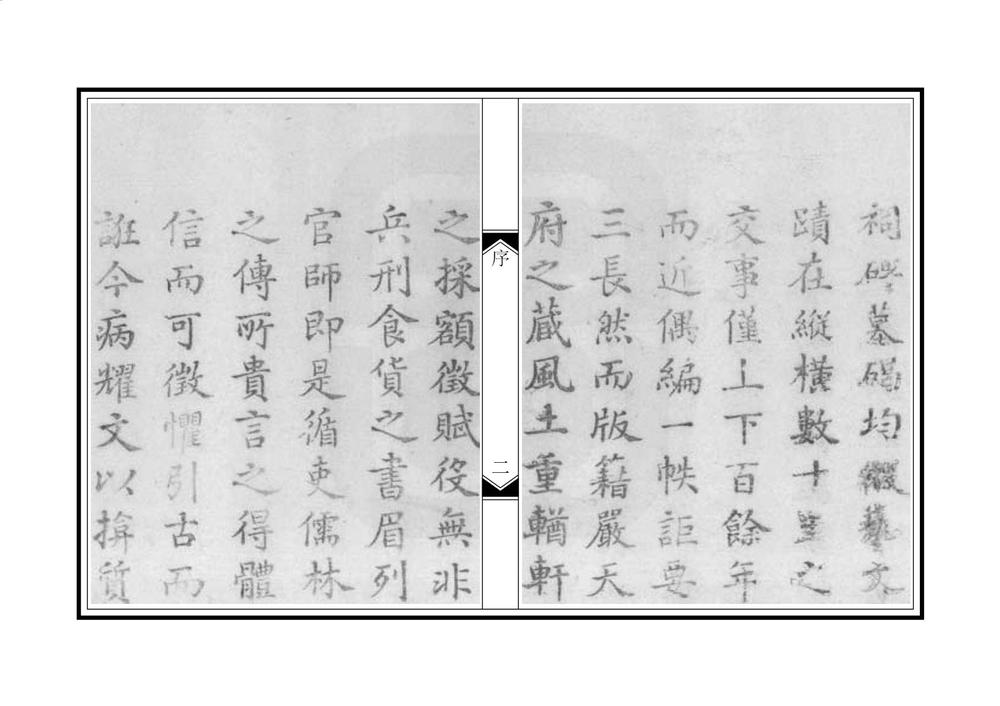 祠碑墓碣均綴藝文
蹟在縱橫數十里之
交事僅上下百餘年
而近偶編一帙詎要
三長然而版籍嚴天
府之蔵風土重輶軒
序
二
之採額徵賦役無非
兵刑食貨之書眉列
官師即是循吏儒林
之傳所貴言之得體
信而可徵懼引古而
誑今病耀文以揜質